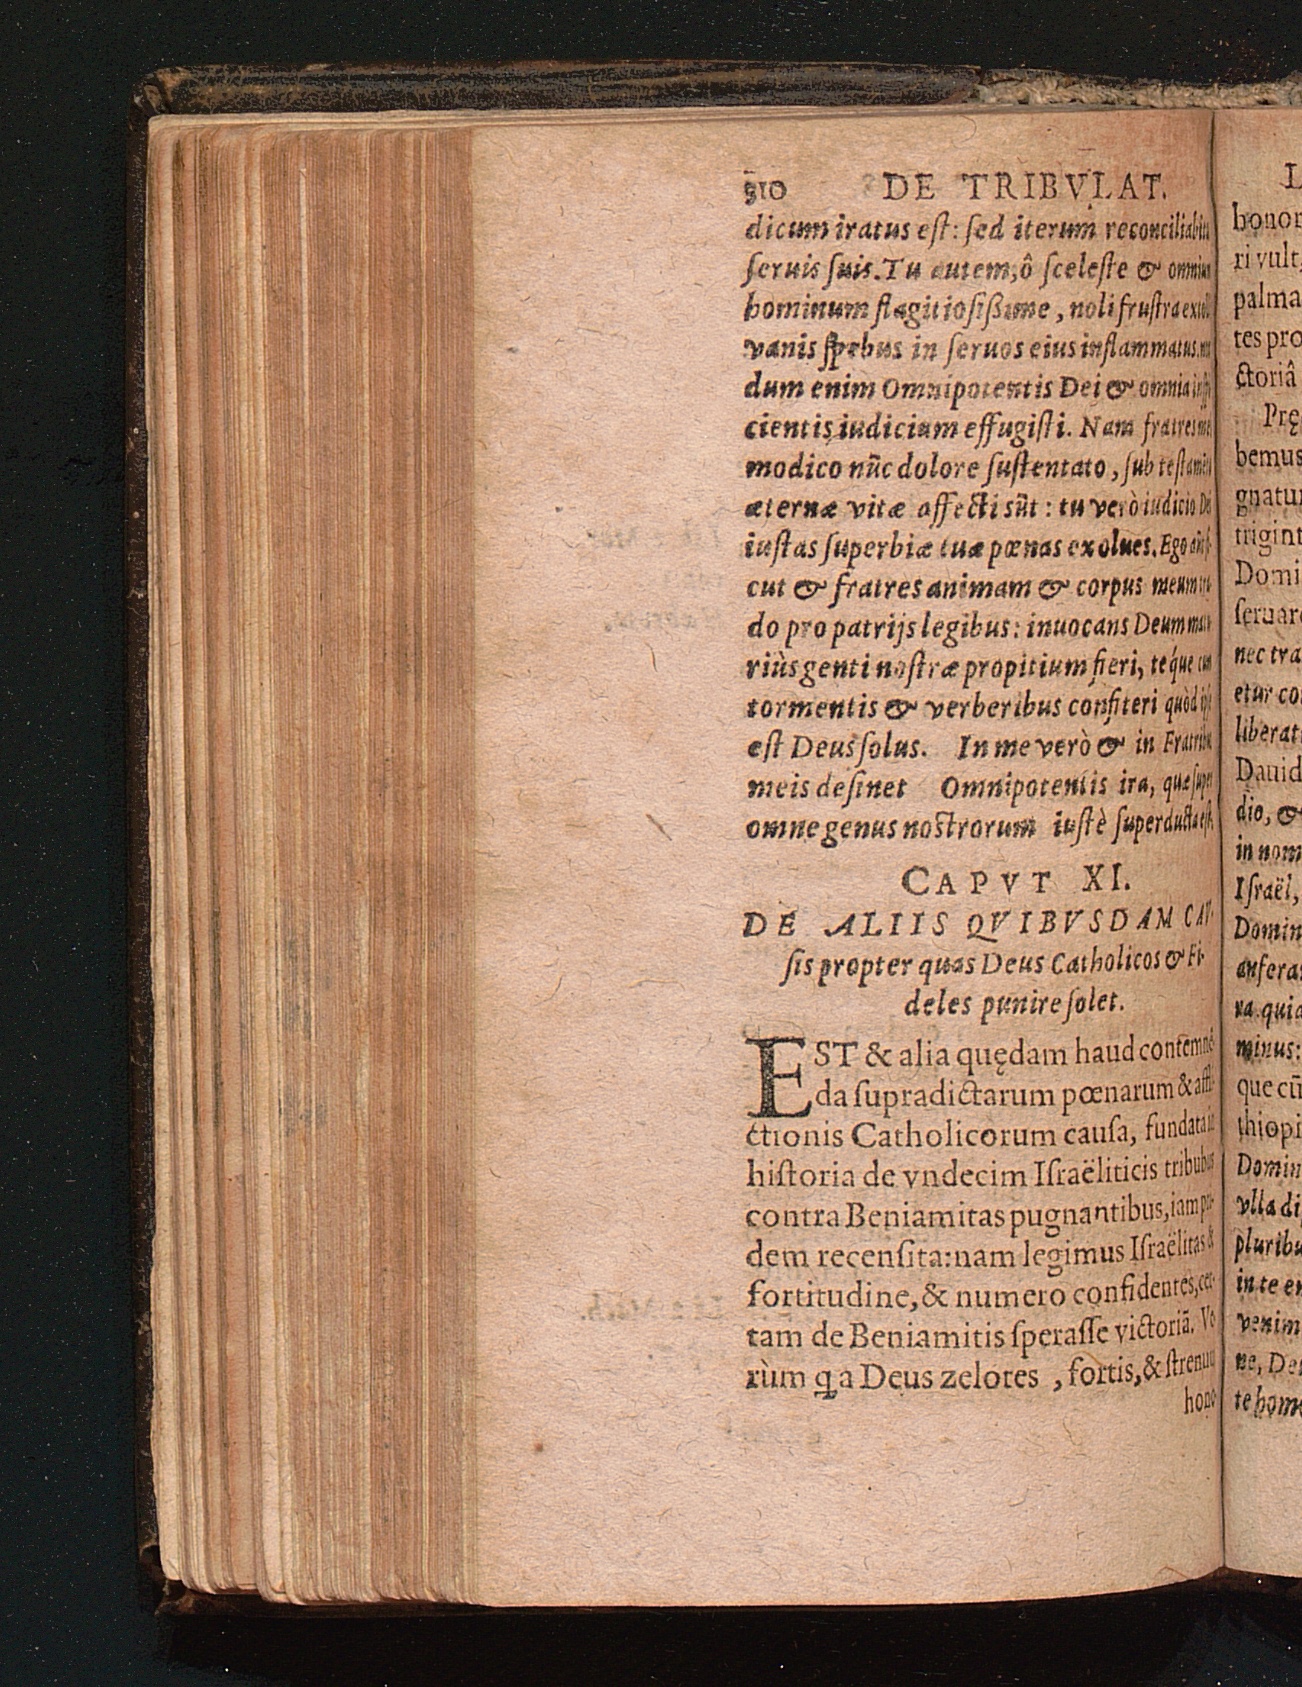 310 DE TRIBVLAT.
dicum iratus eſt: ſed iterum reconciliabitur
ſeruis ſuis. Tu autem, ô ſceleſte & omnium
hominum flagitioſißime, noli fruſtra extolli
vanis ſpebus in ſeruos eius inflammatus. non
dum enim Omnipotentis Dei & omnia inſpi
cientis iudicium effugiſti. Nam fratres mei
modico nūc dolore ſuſtentato, ſub teſtamēto
æternæ vitæ affecti sūt: tu verò iudicio Dei
iuſtas ſuperbiæ tuæ pœnas exolues. Ego autē ſi
cut & fratres animam & corpus meum tra
do pro patrijs legibus: inuocans Deum matu
riùs genti noſtræ propitium fieri, teque cum
tormentis & verberibus confiteri quòd ipſe
eſt Deus ſolus. In me verò & in Fratribus
meis deſinet Omnipotentis ira, quæ ſuper
omne genus noſtrorum iuſtè ſuperducta eſt.
CAPVT XI.
DE ALIIS QVIBVSDAM CAV-
ſis propter quas Deus Catholicos & Fi-
deles punire ſolet.
EST & alia quędam haud contēmnē
da ſupradictarum pœnarum & affli-
ctionis Catholicorum cauſa, fundata in
hiſtoria de vndecim Iſraëliticis tribubus
contra Beniamitas pugnantibus, iam pri-
dem recenſita: nam legimus Iſraëlitas &
fortitudine, & numero confidentes, cer-
tam de Beniamitis ſperaſſe victoriā. Ve
rùm ꝗa Deus zelotes, fortis, & ſtrenuus
hono
L
honor
ri vult,
palma
tes pro
ctoriâ
Prę
bemus
gnatur
trigint
Domi
ſeruare
nec tra
etur co
liberat
Dauid
dio, &
in nom
Iſraël,
Domin
auferas
ra. quia
minus:
que cū
thiopi
Domin
vlla di
pluribu
in te en
venim
ne, De
te homo